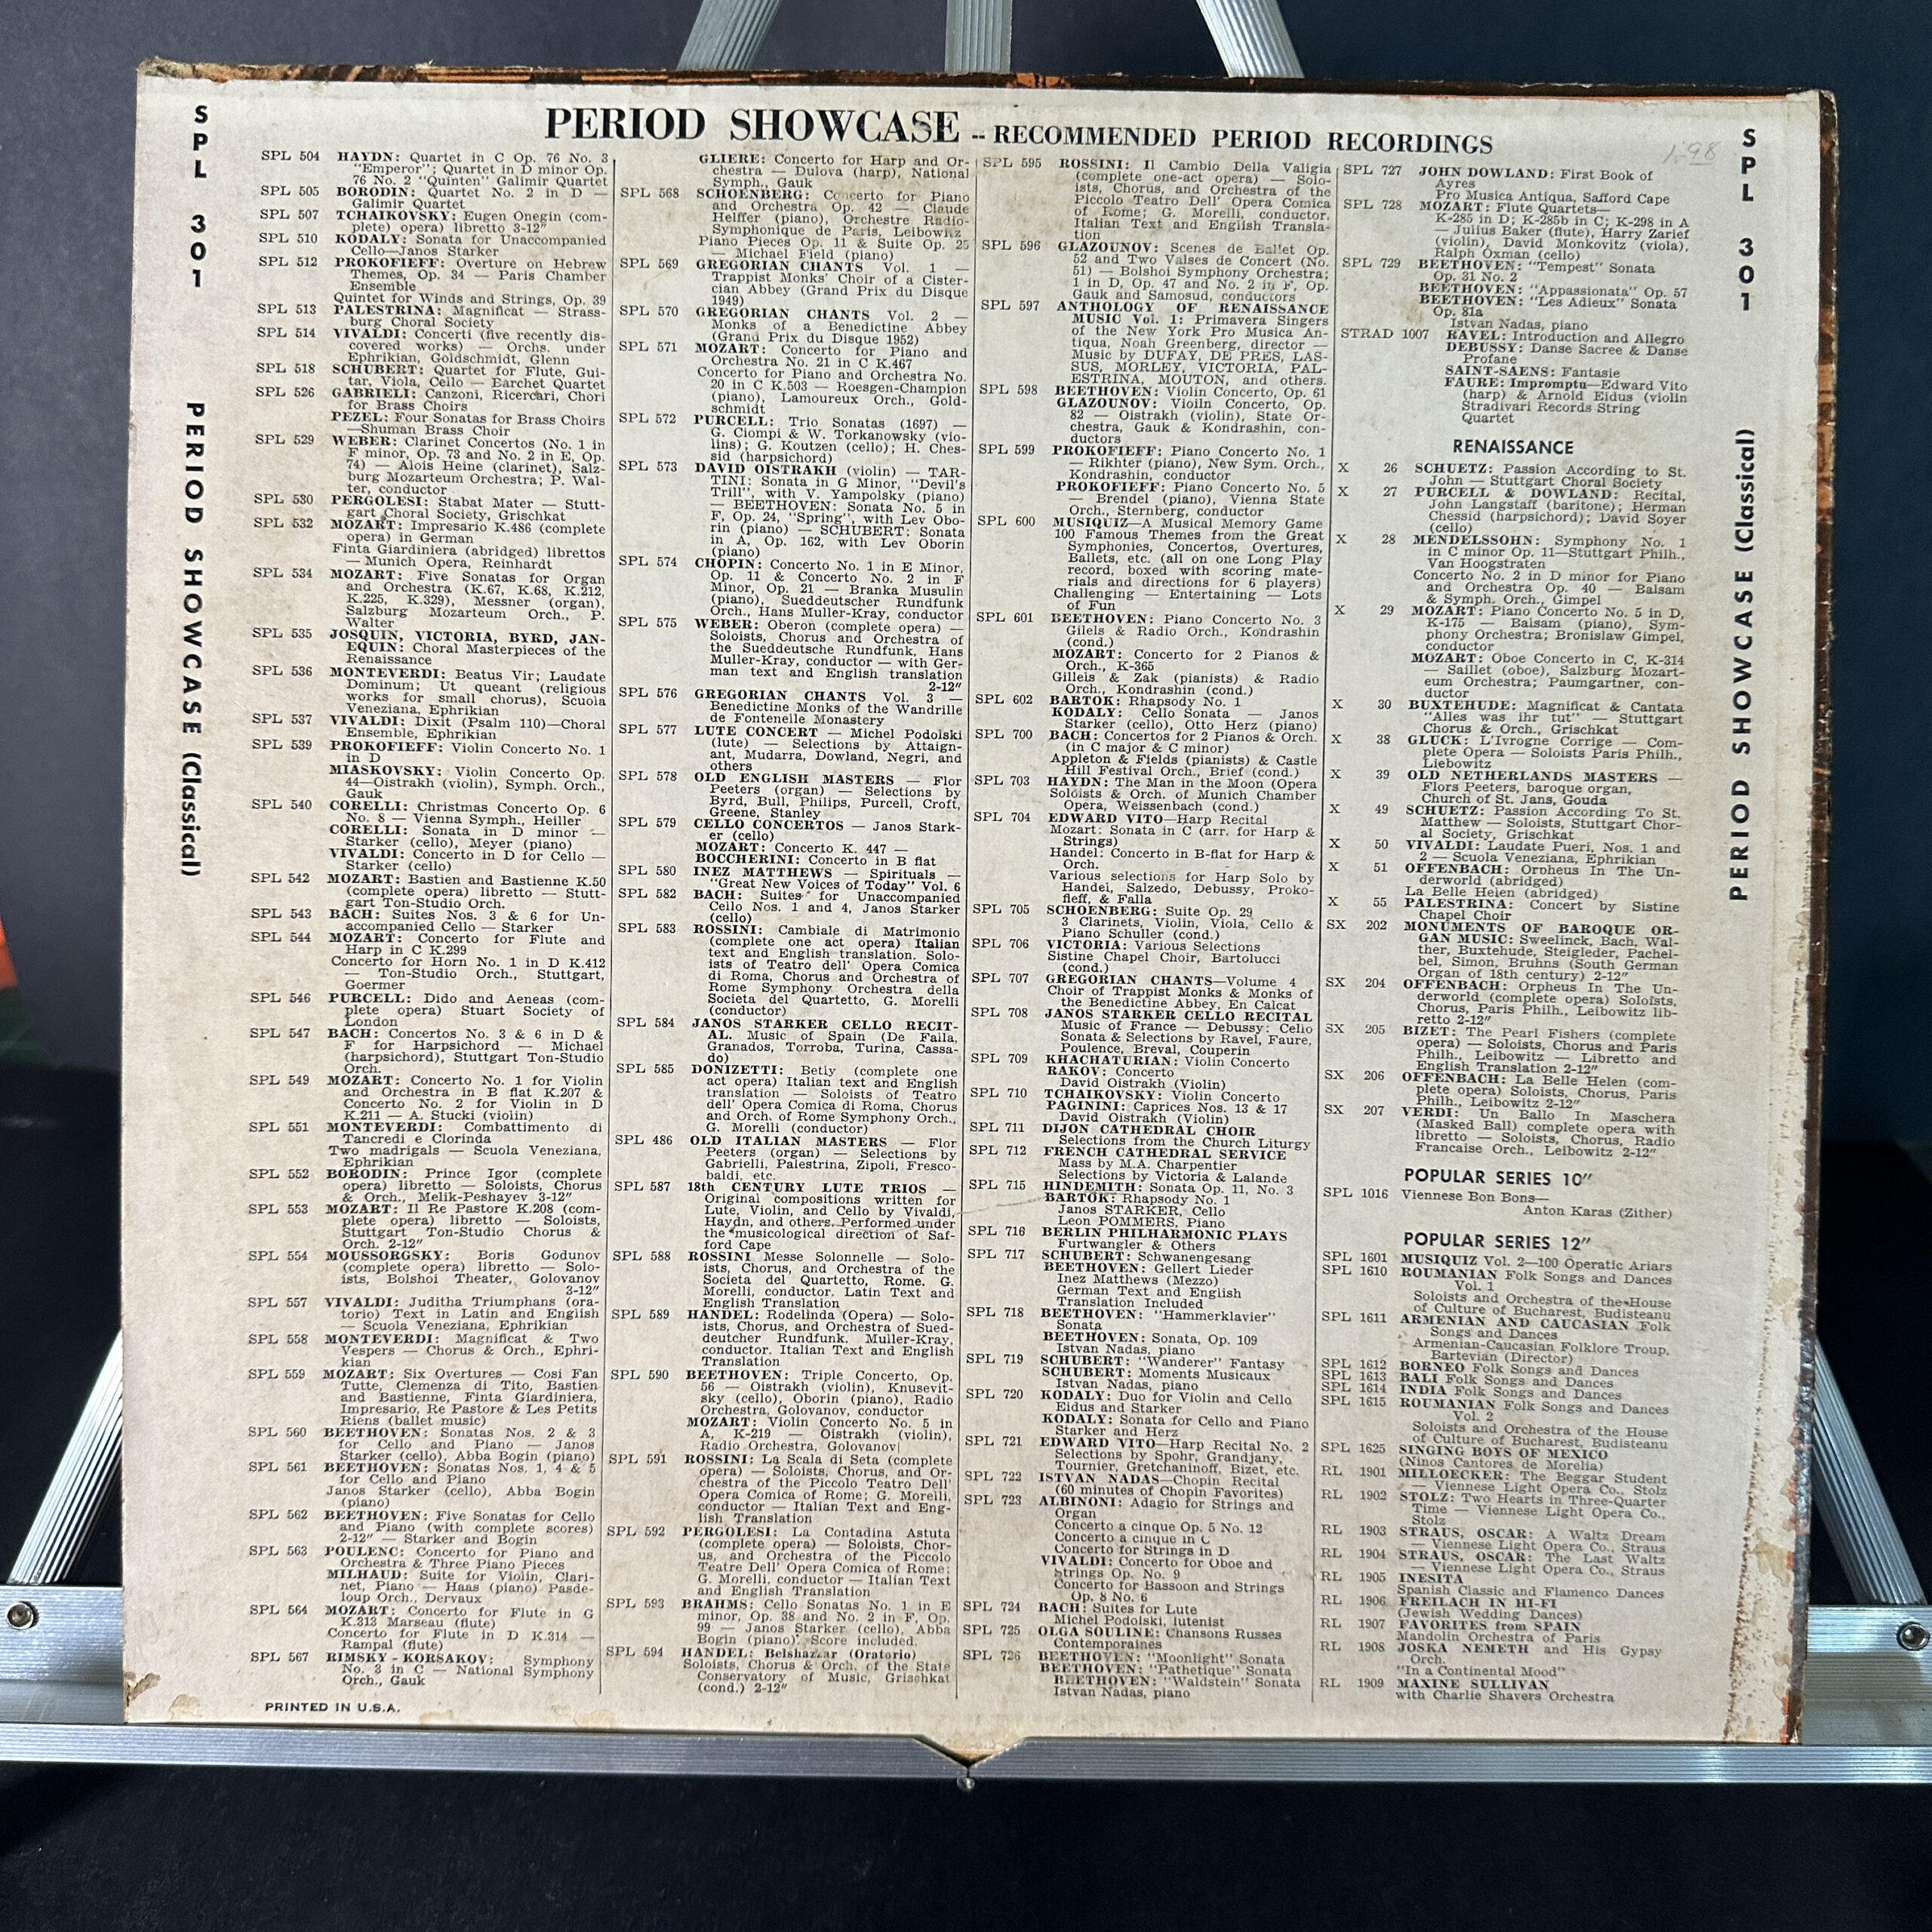 PERIOD SHOWCASE -- RECOMMENDED PERIOD RECORDINGS
1.98
SPL 301 PERIOD SHOWCASE (Classical)
SPL 504 HAYDN: Quartet in C Op. 76 No. 3
"Emperor"; Quartet in D minor Op.
76 No. 2 "Quinten" Galimir Quartet
SPL 505 BORODIN: Quartet No. 2 in D —
Galimir Quartet
SPL 507 TCHAIKOVSKY: Eugen Onegin (com-
plete) opera) libretto 3-12"
SPL 510 KODALY: Sonata for Unaccompanied
Cello—Janos Starker
SPL 512 PROKOFIEFF: Overture on Hebrew
Themes, Op. 34 — Paris Chamber
Ensemble
Quintet for Winds and Strings, Op. 39
SPL 513 PALESTRINA: Magnificat — Strass-
burg Choral Society
SPL 514 VIVALDI: Concerti (five recently dis-
covered works) — Orchs. under
Ephrikian, Goldschmidt, Glenn
SPL 518 SCHUBERT: Quartet for Flute, Gui-
tar, Viola, Cello — Barchet Quartet
SPL 526 GABRIELI: Canzoni, Ricercari, Chori
for Brass Choirs
PEZEL: Four Sonatas for Brass Choirs
—Shuman Brass Choir
SPL 529 WEBER: Clarinet Concertos (No. 1 in
F minor, Op. 73 and No. 2 in E, Op.
74) — Alois Heine (clarinet), Salz-
burg Mozarteum Orchestra; P. Wal-
ter, conductor
SPL 530 PERGOLESI: Stabat Mater — Stutt-
gart Choral Society, Grischkat
SPL 532 MOZART: Impresario K.486 (complete
opera) in German
Finta Giardiniera (abridged) librettos
— Munich Opera, Reinhardt
SPL 534 MOZART: Five Sonatas for Organ
and Orchestra (K.67, K.68, K.212,
K.225, K.329), Messner (organ),
Salzburg Mozarteum Orch., P.
Walter
SPL 535 JOSQUIN, VICTORIA, BYRD, JAN-
EQUIN: Choral Masterpieces of the
Renaissance
SPL 536 MONTEVERDI: Beatus Vir; Laudate
Dominum; Ut queant (religious
works for small chorus), Scuola
Veneziana, Ephrikian
SPL 537 VIVALDI: Dixit (Psalm 110)—Choral
Ensemble, Ephrikian
SPL 539 PROKOFIEFF: Violin Concerto No. 1
in D
MIASKOVSKY: Violin Concerto Op.
44—Oistrakh (violin), Symph. Orch.,
Gauk
SPL 540 CORELLI: Christmas Concerto Op. 6
No. 8 — Vienna Symph., Heiller
CORELLI: Sonata in D minor —
Starker (cello), Meyer (piano)
VIVALDI: Concerto in D for Cello —
Starker (cello)
SPL 542 MOZART: Bastien and Bastienne K.50
(complete opera) libretto — Stutt-
gart Ton-Studio Orch.
SPL 543 BACH: Suites Nos. 3 & 6 for Un-
accompanied Cello — Starker
SPL 544 MOZART: Concerto for Flute and
Harp in C K.299
Concerto for Horn No. 1 in D K.412
— Ton-Studio Orch., Stuttgart,
Goermer
SPL 546 PURCELL: Dido and Aeneas (com-
plete opera) Stuart Society of
London
SPL 547 BACH: Concertos No. 3 & 6 in D &
F for Harpsichord — Michael
(harpsichord), Stuttgart Ton-Studio
Orch.
SPL 549 MOZART: Concerto No. 1 for Violin
and Orchestra in B flat K.207 &
Concerto No. 2 for Violin in D
K.211 — A. Stucki (violin)
SPL 551 MONTEVERDI: Combattimento di
Tancredi e Clorinda
Two madrigals — Scuola Veneziana,
Ephrikian
SPL 552 BORODIN: Prince Igor (complete
opera) libretto — Soloists, Chorus
& Orch., Melik-Peshayev 3-12"
SPL 553 MOZART: Il Re Pastore K.208 (com-
plete opera) libretto — Soloists,
Stuttgart Ton-Studio Chorus &
Orch. 2-12"
SPL 554 MOUSSORGSKY: Boris Godunov
(complete opera) libretto — Solo-
ists, Bolshoi Theater, Golovanov
3-12"
SPL 557 VIVALDI: Juditha Triumphans (ora-
torio) Text in Latin and English
— Scuola Veneziana, Ephrikian
SPL 558 MONTEVERDI: Magnificat & Two
Vespers — Chorus & Orch., Ephri-
kian
SPL 559 MOZART: Six Overtures — Cosi Fan
Tutte, Clemenza di Tito, Bastien
and Bastienne, Finta Giardiniera,
Impresario, Re Pastore & Les Petits
Riens (ballet music)
SPL 560 BEETHOVEN: Sonatas Nos. 2 & 3
for Cello and Piano — Janos
Starker (cello), Abba Bogin (piano)
SPL 561 BEETHOVEN: Sonatas Nos. 1, 4 & 5
for Cello and Piano
Janos Starker (cello), Abba Bogin
(piano)
SPL 562 BEETHOVEN: Five Sonatas for Cello
and Piano (with complete scores)
2-12" — Starker and Bogin
SPL 563 POULENC: Concerto for Piano and
Orchestra & Three Piano Pieces
MILHAUD: Suite for Violin, Clari-
net, Piano — Haas (piano) Pasde-
loup Orch., Dervaux
SPL 564 MOZART: Concerto for Flute in G
K.313 Marseau (flute)
Concerto for Flute in D K.314 —
Rampal (flute)
SPL 567 RIMSKY-KORSAKOV: Symphony
No. 3 in C — National Symphony
Orch., Gauk
PRINTED IN U.S.A.
GLIERE: Concerto for Harp and Or-
chestra — Dulova (harp), National
Symph., Gauk
SPL 568 SCHOENBERG: Concerto for Piano
and Orchestra Op. 42 — Claude
Helffer (piano), Orchestre Radio-
Symphonique de Paris, Leibowitz
Piano Pieces Op. 11 & Suite Op. 25
— Michael Field (piano)
SPL 569 GREGORIAN CHANTS Vol. 1 —
Trappist Monks' Choir of a Cister-
cian Abbey (Grand Prix du Disque
1949)
SPL 570 GREGORIAN CHANTS Vol. 2 —
Monks of a Benedictine Abbey
(Grand Prix du Disque 1952)
SPL 571 MOZART: Concerto for Piano and
Orchestra No. 21 in C K.467
Concerto for Piano and Orchestra No.
20 in C K.503 — Roesgen-Champion
(piano), Lamoureux Orch., Gold-
schmidt
SPL 572 PURCELL: Trio Sonatas (1697) —
G. Ciompi & W. Torkanowsky (vio-
lins); G. Koutzen (cello); H. Ches-
sid (harpsichord)
SPL 573 DAVID OISTRAKH (violin) — TAR-
TINI: Sonata in G Minor, "Devil's
Trill", with V. Yampolsky (piano)
— BEETHOVEN: Sonata No. 5 in
F, Op. 24, "Spring", with Lev Obo-
rin (piano) — SCHUBERT: Sonata
in A, Op. 162, with Lev Oborin
(piano)
SPL 574 CHOPIN: Concerto No. 1 in E Minor,
Op. 11 & Concerto No. 2 in F
Minor, Op. 21 — Branka Musulin
(piano), Sueddeutscher Rundfunk
Orch., Hans Muller-Kray, conductor
SPL 575 WEBER: Oberon (complete opera) —
Soloists, Chorus and Orchestra of
the Sueddeutsche Rundfunk, Hans
Muller-Kray, conductor — with Ger-
man text and English translation
2-12"
SPL 576 GREGORIAN CHANTS Vol. 3 —
Benedictine Monks of the Wandrille
de Fontenelle Monastery
SPL 577 LUTE CONCERT — Michel Podolski
(lute) — Selections by Attaign-
ant, Mudarra, Dowland, Negri, and
others
SPL 578 OLD ENGLISH MASTERS — Flor
Peeters (organ) — Selections by
Byrd, Bull, Philips, Purcell, Croft,
Greene, Stanley
SPL 579 CELLO CONCERTOS — Janos Stark-
er (cello)
MOZART: Concerto K. 447 —
BOCCHERINI: Concerto in B flat
SPL 580 INEZ MATTHEWS — Spirituals —
"Great New Voices of Today" Vol. 6
SPL 582 BACH: Suites for Unaccompanied
Cello Nos. 1 and 4, Janos Starker
(cello)
SPL 583 ROSSINI: Cambiale di Matrimonio
(complete one act opera) Italian
text and English translation. Solo-
ists of Teatro dell' Opera Comica
di Roma, Chorus and Orchestra of
Rome Symphony Orchestra della
Societa del Quartetto, G. Morelli
(conductor)
SPL 584 JANOS STARKER CELLO RECIT-
AL. Music of Spain (De Falla,
Granados, Torroba, Turina, Cassa-
do)
SPL 585 DONIZETTI: Betly (complete one
act opera) Italian text and English
translation — Soloists of Teatro
dell' Opera Comica di Roma, Chorus
and Orch. of Rome Symphony Orch.,
G. Morelli (conductor)
SPL 486 OLD ITALIAN MASTERS — Flor
Peeters (organ) — Selections by
Gabrielli, Palestrina, Zipoli, Fresco-
baldi, etc.
SPL 587 18th CENTURY LUTE TRIOS —
Original compositions written for
Lute, Violin, and Cello by Vivaldi,
Haydn, and others. Performed under
the musicological direction of Saf-
ford Cape
SPL 588 ROSSINI Messe Solonnelle — Solo-
ists, Chorus, and Orchestra of the
Societa del Quartetto, Rome. G.
Morelli, conductor. Latin Text and
English Translation
SPL 589 HANDEL: Rodelinda (Opera) — Solo-
ists, Chorus, and Orchestra of Sued-
deutcher Rundfunk. Muller-Kray,
conductor. Italian Text and English
Translation
SPL 590 BEETHOVEN: Triple Concerto, Op.
56 — Oistrakh (violin), Knusevit-
sky (cello), Oborin (piano), Radio
Orchestra, Golovanov, conductor
MOZART: Violin Concerto No. 5 in
A, K-219 — Oistrakh (violin),
Radio Orchestra, Golovanov
SPL 591 ROSSINI: La Scala di Seta (complete
opera) — Soloists, Chorus, and Or-
chestra of the Piccolo Teatro Dell'
Opera Comica of Rome; G. Morelli,
conductor — Italian Text and Eng-
lish Translation
SPL 592 PERGOLESI: La Contadina Astuta
(complete opera) — Soloists, Chor-
us, and Orchestra of the Piccolo
Teatre Dell' Opera Comica of Rome;
G. Morelli, conductor — Italian Text
and English Translation
SPL 593 BRAHMS: Cello Sonatas No. 1 in E
minor, Op. 38 and No. 2 in F, Op.
99 — Janos Starker (cello), Abba
Bogin (piano). Score included.
SPL 594 HANDEL: Belshazzar (Oratorio)
Soloists, Chorus & Orch. of the State
Conservatory of Music, Grischkat
(cond.) 2-12"
SPL 595 ROSSINI: Il Cambio Della Valigia
(complete one-act opera) — Solo-
ists, Chorus, and Orchestra of the
Piccolo Teatro Dell' Opera Comica
of Rome; G. Morelli, conductor.
Italian Text and English Transla-
tion
SPL 596 GLAZOUNOV: Scenes de Ballet Op.
52 and Two Valses de Concert (No.
51) — Bolshoi Symphony Orchestra;
1 in D, Op. 47 and No. 2 in F, Op.
Gauk and Samosud, conductors
SPL 597 ANTHOLOGY OF RENAISSANCE
MUSIC Vol. 1: Primavera Singers
of the New York Pro Musica An-
tiqua, Noah Greenberg, director —
Music by DUFAY, DE PRES, LAS-
SUS, MORLEY, VICTORIA, PAL-
ESTRINA, MOUTON, and others.
SPL 598 BEETHOVEN: Violin Concerto, Op. 61
GLAZOUNOV: Violin Concerto, Op.
82 — Oistrakh (violin), State Or-
chestra, Gauk & Kondrashin, con-
ductors
SPL 599 PROKOFIEFF: Piano Concerto No. 1
— Rikhter (piano), New Sym. Orch.,
Kondrashin, conductor
PROKOFIEFF: Piano Concerto No. 5
— Brendel (piano), Vienna State
Orch., Sternberg, conductor
SPL 600 MUSIQUIZ—A Musical Memory Game
100 Famous Themes from the Great
Symphonies, Concertos, Overtures,
Ballets, etc. (all on one Long Play
record, boxed with scoring mate-
rials and directions for 6 players)
Challenging — Entertaining — Lots
of Fun
SPL 601 BEETHOVEN: Piano Concerto No. 3
Gilels & Radio Orch., Kondrashin
(cond.)
MOZART: Concerto for 2 Pianos &
Orch., K-365
Gilleis & Zak (pianists) & Radio
Orch., Kondrashin (cond.)
SPL 602 BARTOK: Rhapsody No. 1
KODALY: Cello Sonata — Janos
Starker (cello), Otto Herz (piano)
SPL 700 BACH: Concertos for 2 Pianos & Orch.
(in C major & C minor)
Appleton & Fields (pianists) & Castle
Hill Festival Orch., Brief (cond.)
SPL 703 HAYDN: The Man in the Moon (Opera
Soloists & Orch. of Munich Chamber
Opera, Weissenbach (cond.)
SPL 704 EDWARD VITO—Harp Recital
Mozart: Sonata in C (arr. for Harp &
Strings)
Handel: Concerto in B-flat for Harp &
Orch.
Various selections for Harp Solo by
Handel, Salzedo, Debussy, Proko-
fieff, & Falla
SPL 705 SCHOENBERG: Suite Op. 29
3 Clarinets, Violin, Viola, Cello &
Piano Schuller (cond.)
SPL 706 VICTORIA: Various Selections
Sistine Chapel Choir, Bartolucci
(cond.)
SPL 707 GREGORIAN CHANTS—Volume 4
Choir of Trappist Monks & Monks of
the Benedictine Abbey, En Calcat
SPL 708 JANOS STARKER CELLO RECITAL
Music of France — Debussy: Cello
Sonata & Selections by Ravel, Faure,
Poulence, Breval, Couperin
SPL 709 KHACHATURIAN: Violin Concerto
RAKOV: Concerto
David Oistrakh (Violin)
SPL 710 TCHAIKOVSKY: Violin Concerto
PAGININI: Caprices Nos. 13 & 17
David Oistrakh (Violin)
SPL 711 DIJON CATHEDRAL CHOIR
Selections from the Church Liturgy
SPL 712 FRENCH CATHEDRAL SERVICE
Mass by M.A. Charpentier
Selections by Victoria & Lalande
SPL 715 HINDEMITH: Sonata Op. 11, No. 3
BARTOK: Rhapsody No. 1
Janos STARKER, Cello
Leon POMMERS, Piano
SPL 716 BERLIN PHILHARMONIC PLAYS
Furtwangler & Others
SPL 717 SCHUBERT: Schwanengesang
BEETHOVEN: Gellert Lieder
Inez Matthews (Mezzo)
German Text and English
Translation Included
SPL 718 BEETHOVEN: "Hammerklavier"
Sonata
BEETHOVEN: Sonata, Op. 109
Istvan Nadas, piano
SPL 719 SCHUBERT: "Wanderer" Fantasy
SCHUBERT: Moments Musicaux
Istvan Nadas, piano
SPL 720 KODALY: Duo for Violin and Cello
Eidus and Starker
KODALY: Sonata for Cello and Piano
Starker and Herz
SPL 721 EDWARD VITO—Harp Recital No. 2
Selections by Spohr, Grandjany,
Tournier, Gretchaninoff, Bizet, etc.
SPL 722 ISTVAN NADAS—Chopin Recital
(60 minutes of Chopin Favorites)
SPL 723 ALBINONI: Adagio for Strings and
Organ
Concerto a cinque Op. 5 No. 12
Concerto a cinque in C
Concerto for Strings in D
VIVALDI: Concerto for Oboe and
Strings Op. No. 9
Concerto for Bassoon and Strings
Op. 8 No. 6
SPL 724 BACH: Suites for Lute
Michel Podolski, lutenist
SPL 725 OLGA SOULINE: Chansons Russes
Contemporaines
SPL 726 BEETHOVEN: "Moonlight" Sonata
BEETHOVEN: "Pathetique" Sonata
BEETHOVEN: "Waldstein" Sonata
Istvan Nadas, piano
SPL 727 JOHN DOWLAND: First Book of
Ayres
Pro Musica Antiqua, Safford Cape
SPL 728 MOZART: Flute Quartets—
K-285 in D; K-285b in C; K-298 in A
— Julius Baker (flute), Harry Zarief
(violin), David Monkovitz (viola),
Ralph Oxman (cello)
SPL 729 BEETHOVEN: "Tempest" Sonata
Op. 31 No. 2
BEETHOVEN: "Appassionata" Op. 57
BEETHOVEN: "Les Adieux" Sonata
Op. 81a
Istvan Nadas, piano
STRAD 1007 RAVEL: Introduction and Allegro
DEBUSSY: Danse Sacree & Danse
Profane
SAINT-SAENS: Fantasie
FAURE: Impromptu—Edward Vito
(harp) & Arnold Eidus (violin
Stradivari Records String
Quartet
RENAISSANCE
X 26 SCHUETZ: Passion According to St.
John — Stuttgart Choral Society
X 27 PURCELL & DOWLAND: Recital,
John Langstaff (baritone); Herman
Chessid (harpsichord); David Soyer
(cello)
X 28 MENDELSSOHN: Symphony No. 1
in C minor Op. 11—Stuttgart Philh.,
Van Hoogstraten
Concerto No. 2 in D minor for Piano
and Orchestra Op. 40 — Balsam
& Symph. Orch., Gimpel
X 29 MOZART: Piano Concerto No. 5 in D,
K-175 — Balsam (piano), Sym-
phony Orchestra; Bronislaw Gimpel,
conductor
MOZART: Oboe Concerto in C, K-314
— Saillet (oboe), Salzburg Mozart-
eum Orchestra; Paumgartner, con-
ductor
X 30 BUXTEHUDE: Magnificat & Cantata
"Alles was ihr tut" — Stuttgart
Chorus & Orch., Grischkat
X 38 GLUCK: L'Ivrogne Corrige — Com-
plete Opera — Soloists Paris Philh.,
Liebowitz
X 39 OLD NETHERLANDS MASTERS —
Flors Peeters, baroque organ,
Church of St. Jans, Gouda
X 49 SCHUETZ: Passion According To St.
Matthew — Soloists, Stuttgart Chor-
al Society, Grischkat
X 50 VIVALDI: Laudate Pueri, Nos. 1 and
2 — Scuola Veneziana, Ephrikian
X 51 OFFENBACH: Orpheus In The Un-
derworld (abridged)
La Belle Helen (abridged)
X 55 PALESTRINA: Concert by Sistine
Chapel Choir
SX 202 MONUMENTS OF BAROQUE OR-
GAN MUSIC: Sweelinck, Bach, Wal-
ther, Buxtehude, Steigleder, Pachel-
bel, Simon, Bruhns (South German
Organ of 18th century) 2-12"
SX 204 OFFENBACH: Orpheus In The Un-
derworld (complete opera) Soloists,
Chorus, Paris Philh., Leibowitz lib-
retto 2-12"
SX 205 BIZET: The Pearl Fishers (complete
opera) — Soloists, Chorus and Paris
Philh., Leibowitz — Libretto and
English Translation 2-12"
SX 206 OFFENBACH: La Belle Helen (com-
plete opera) Soloists, Chorus, Paris
Philh., Leibowitz 2-12"
SX 207 VERDI: Un Ballo In Maschera
(Masked Ball) complete opera with
libretto — Soloists, Chorus, Radio
Francaise Orch., Leibowitz 2-12"
POPULAR SERIES 10"
SPL 1016 Viennese Bon Bons—
Anton Karas (Zither)
POPULAR SERIES 12"
SPL 1601 MUSIQUIZ Vol. 2—100 Operatic Ariars
SPL 1610 ROUMANIAN Folk Songs and Dances
Vol. 1
Soloists and Orchestra of the House
of Culture of Bucharest, Budisteanu
SPL 1611 ARMENIAN AND CAUCASIAN Folk
Songs and Dances
Armenian-Caucasian Folklore Troup,
Bartevian (Director)
SPL 1612 BORNEO Folk Songs and Dances
SPL 1613 BALI Folk Songs and Dances
SPL 1614 INDIA Folk Songs and Dances
SPL 1615 ROUMANIAN Folk Songs and Dances
Vol. 2
Soloists and Orchestra of the House
of Culture of Bucharest, Budisteanu
SPL 1625 SINGING BOYS OF MEXICO
(Ninos Cantores de Morelia)
RL 1901 MILLOECKER: The Beggar Student
— Viennese Light Opera Co., Stolz
RL 1902 STOLZ: Two Hearts in Three-Quarter
Time — Viennese Light Opera Co.,
Stolz
RL 1903 STRAUS, OSCAR: A Waltz Dream
— Viennese Light Opera Co., Straus
RL 1904 STRAUS, OSCAR: The Last Waltz
— Viennese Light Opera Co., Straus
RL 1905 INESITA
Spanish Classic and Flamenco Dances
RL 1906 FREILACH IN HI-FI
(Jewish Wedding Dances)
RL 1907 FAVORITES from SPAIN
Mandolin Orchestra of Paris
RL 1908 JOSKA NEMETH and His Gypsy
Orch.
"In a Continental Mood"
RL 1909 MAXINE SULLIVAN
with Charlie Shavers Orchestra
SPL 301 PERIOD SHOWCASE (Classical)